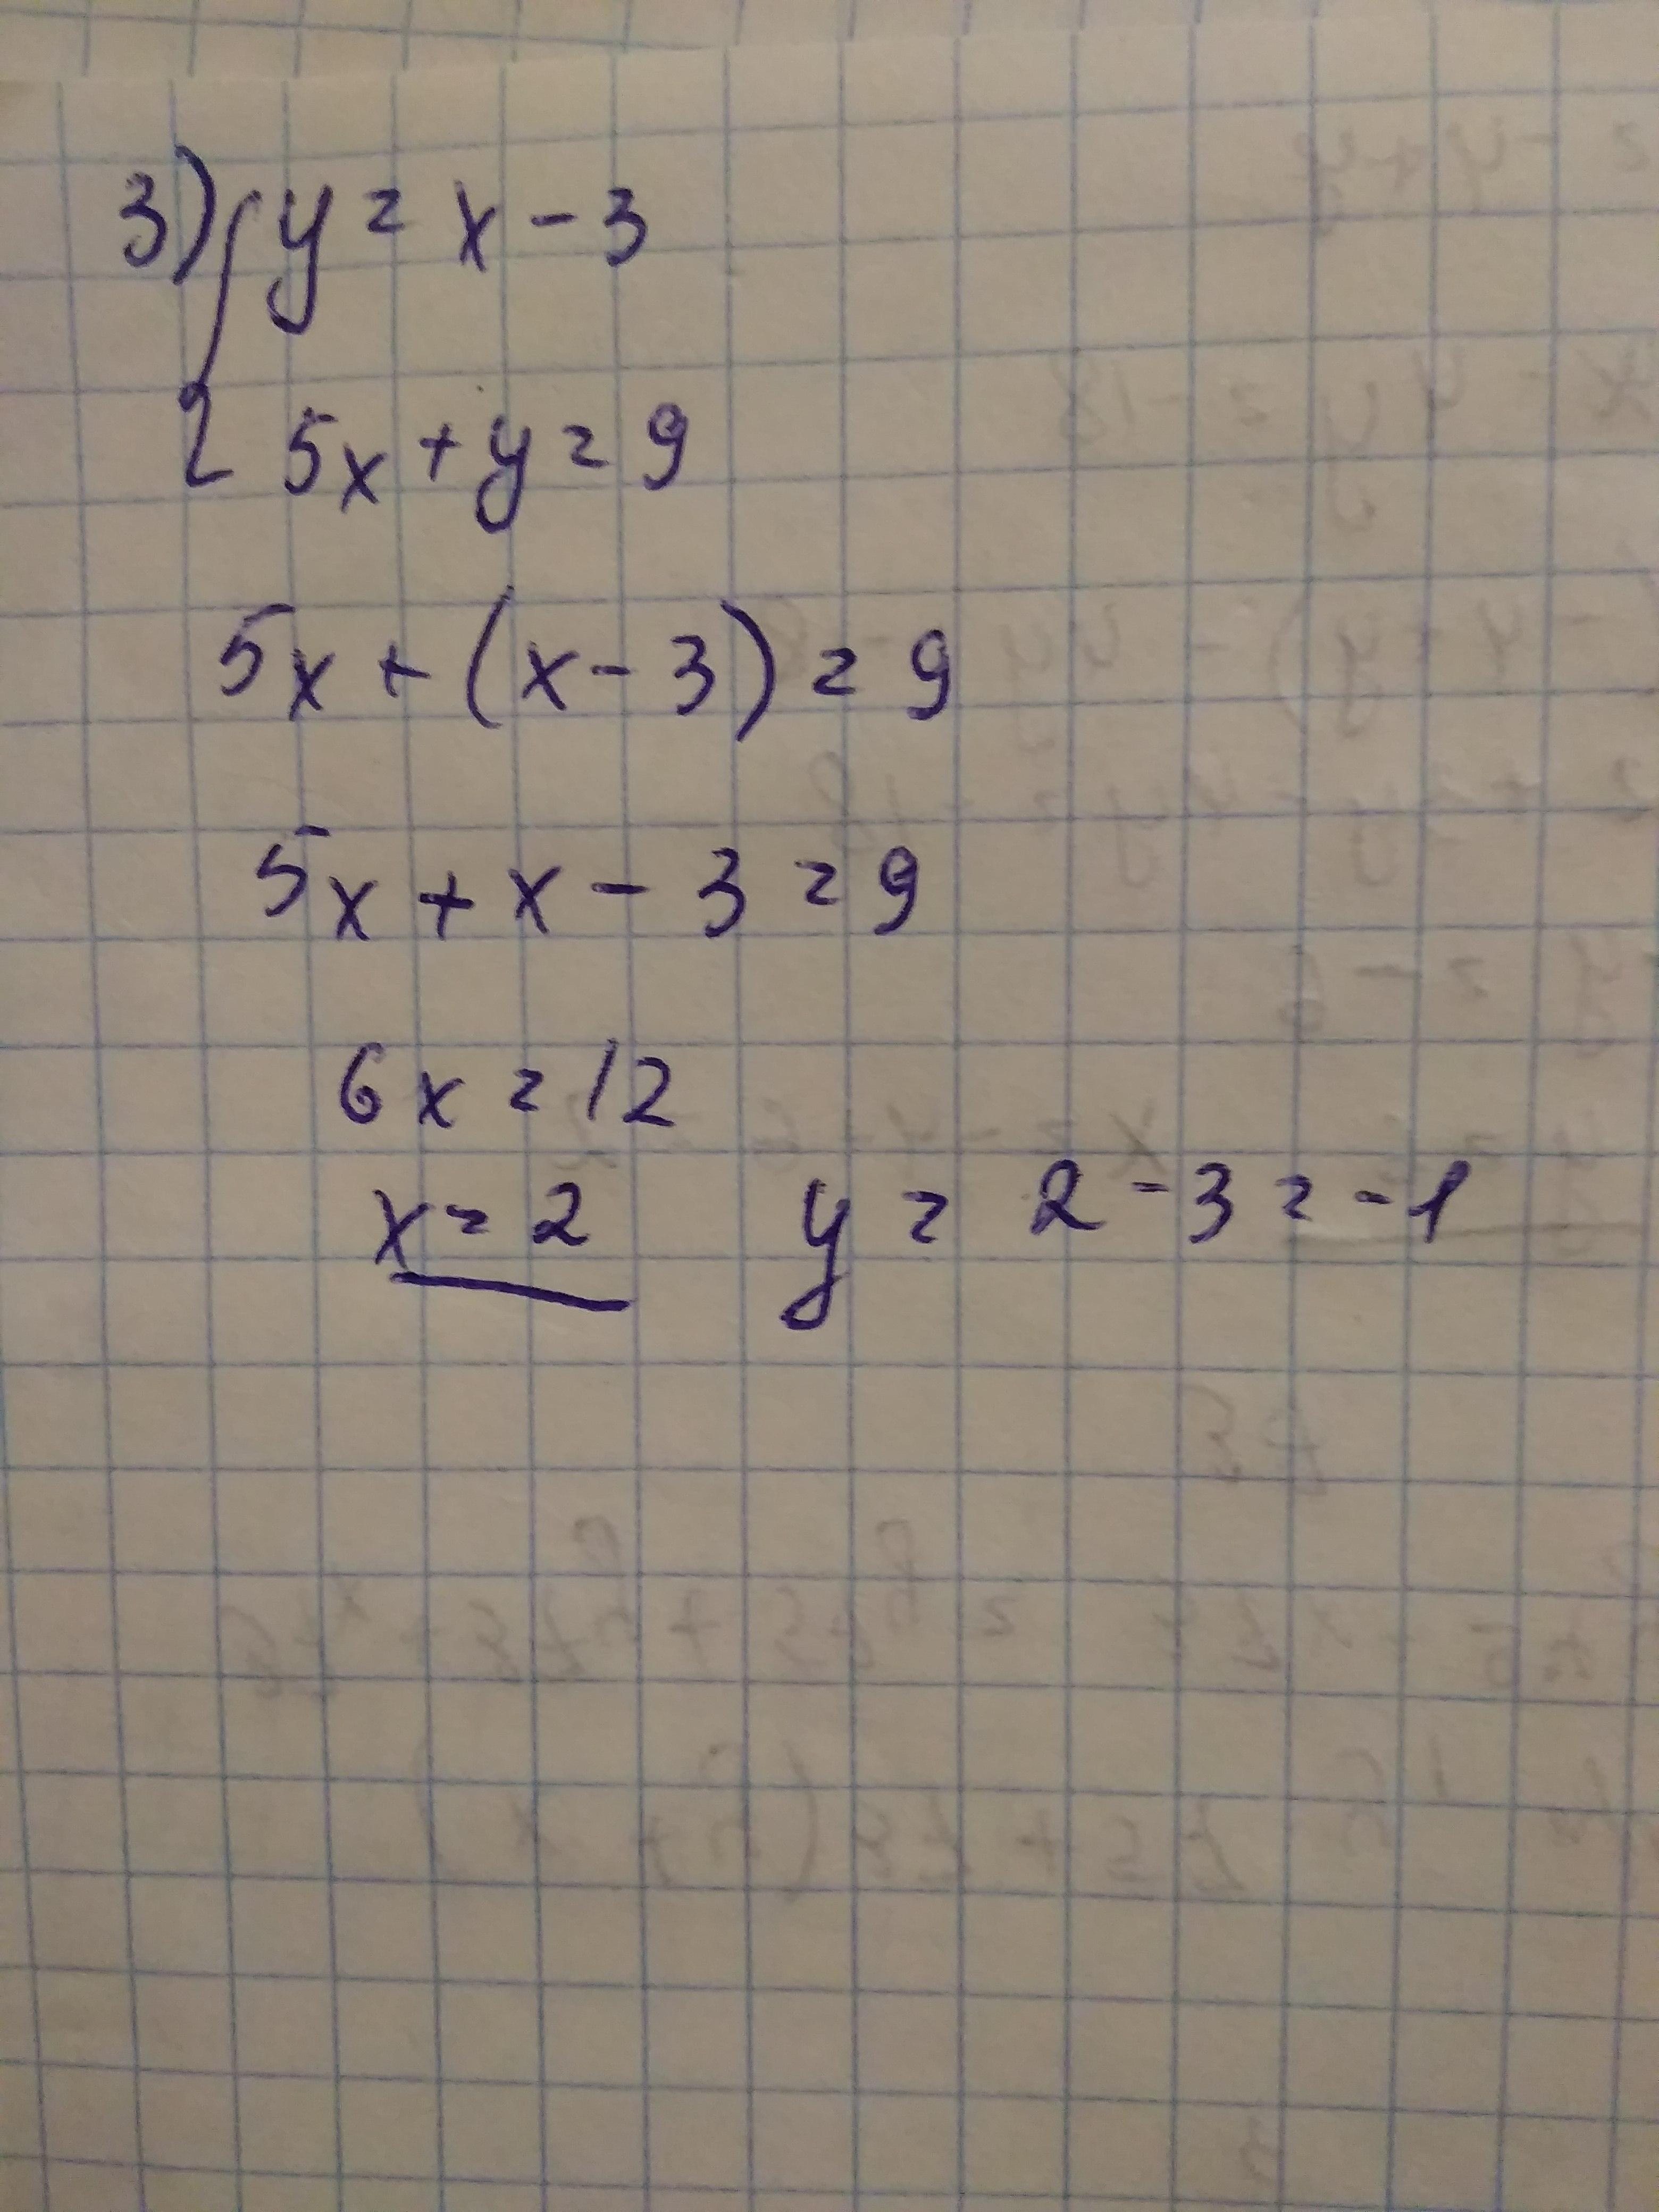 3) { y = x - 3
5x + y = 9
5x + (x - 3) = 9
5x + x - 3 = 9
6x = 12
x = 2 y = 2 - 3 = -1